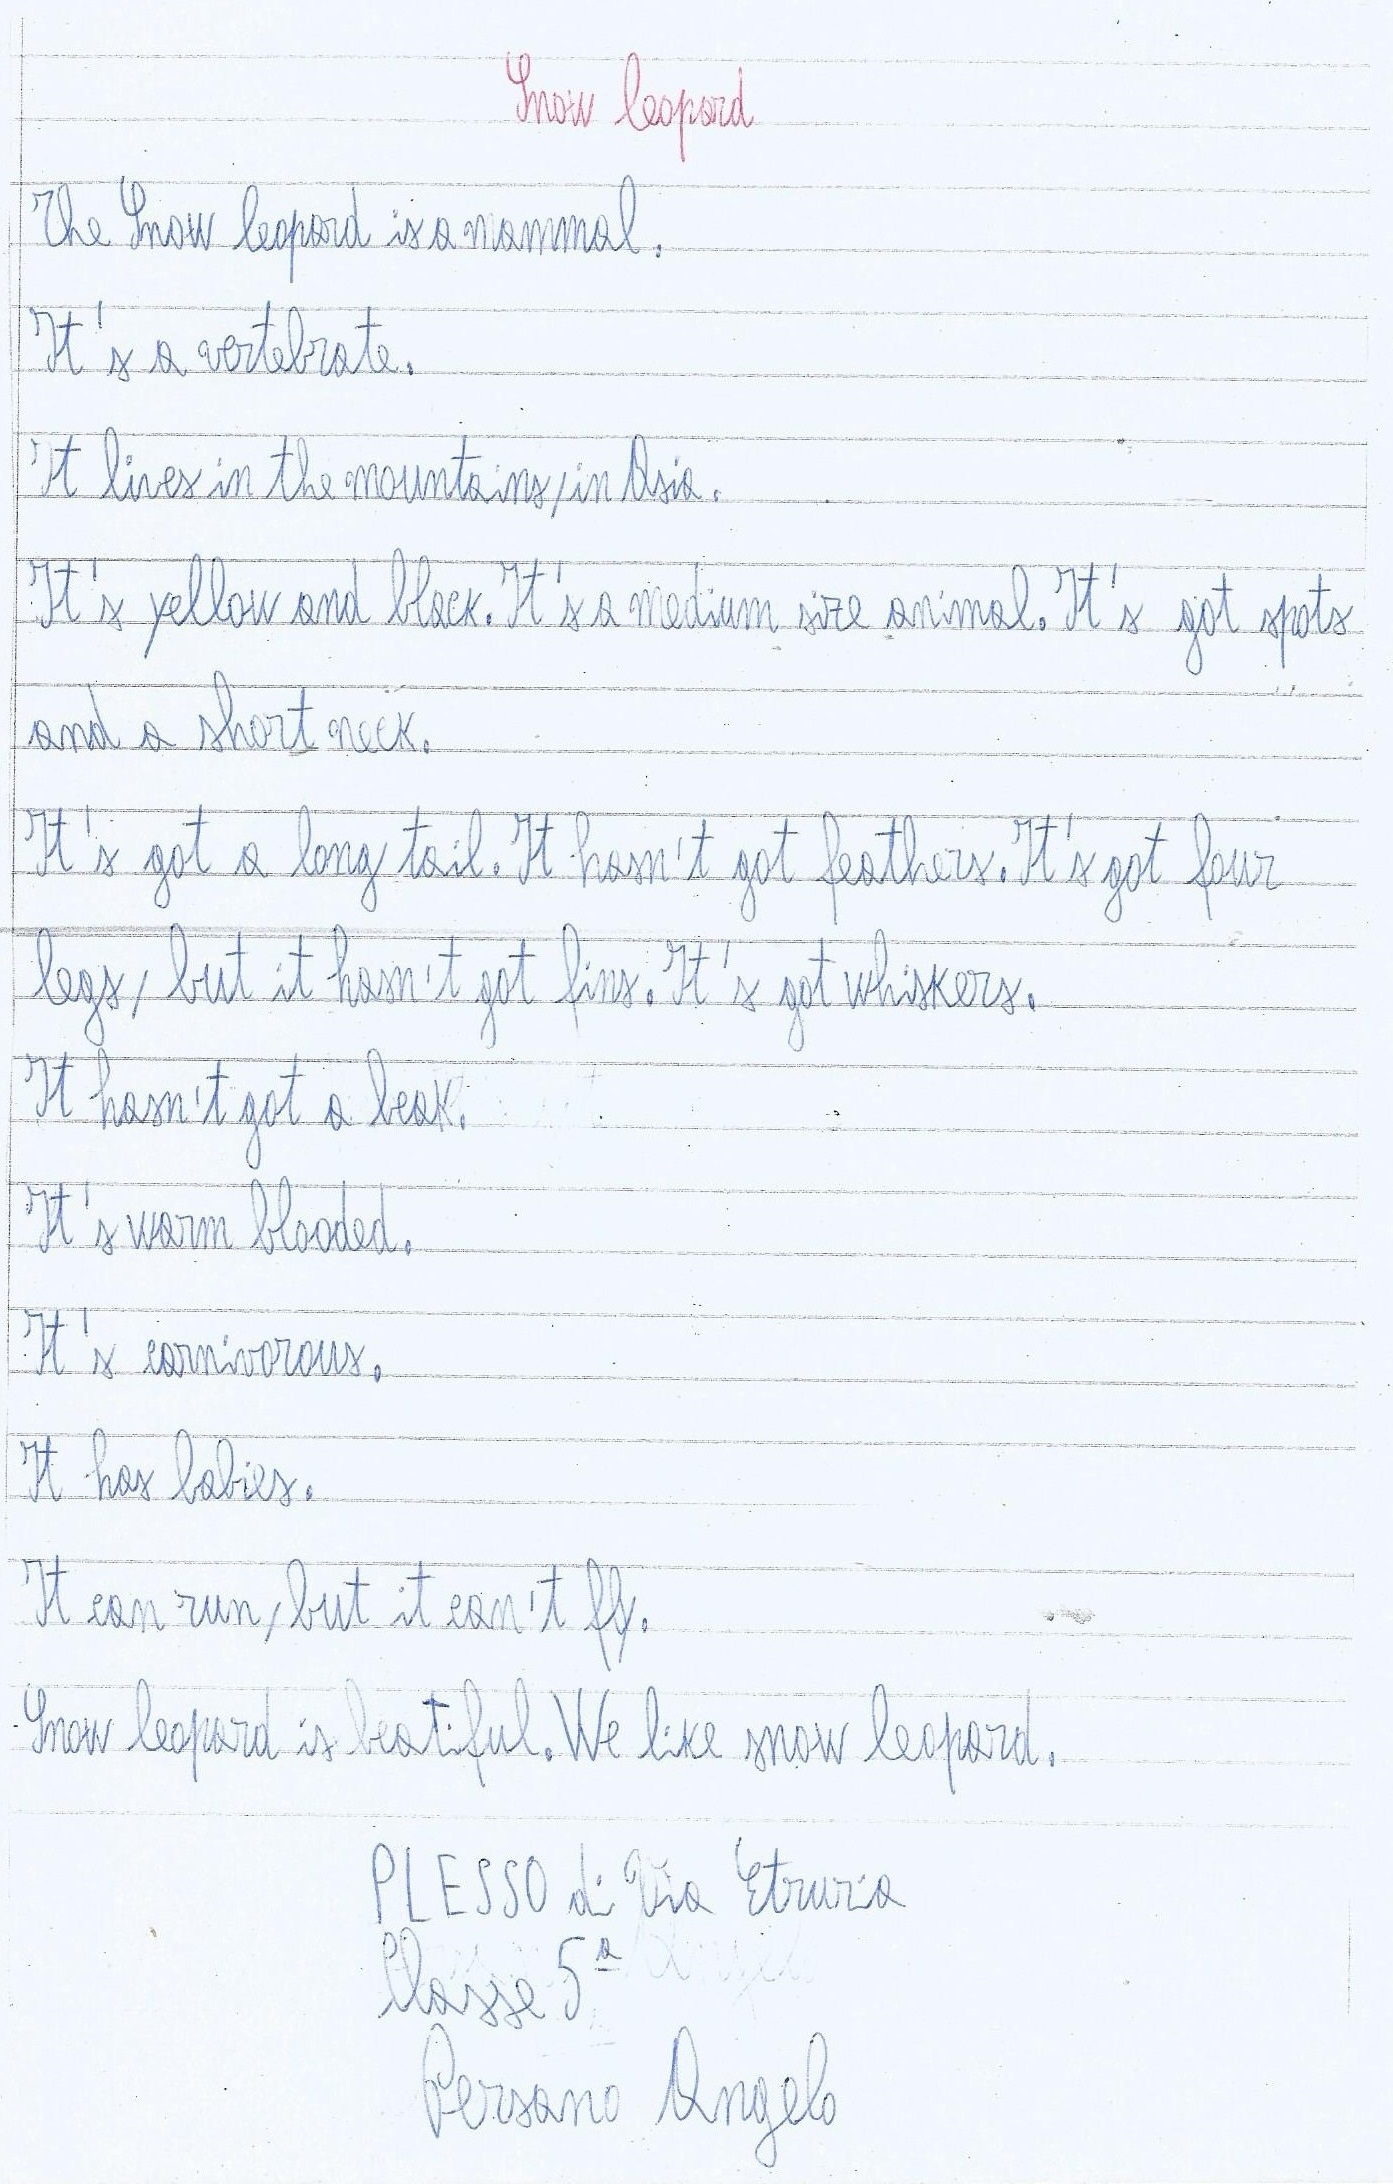 Snow leopard
The Snow leopard is a mammal.
It's a vertebrate.
It lives in the mountains, in Asia.
It's yellow and black. It's a medium size animal. It's got spots
and a short neck.
It's got a long tail. It hasn't got feathers. It's got four
legs, but it hasn't got fins. It's got whiskers.
It hasn't got a beak.
It's warm blooded.
It's carnivorous.
It has babies.
It can run, but it can't fly.
Snow leopard is beatiful. We like snow leopard.
PLESSO di Via Etruria
Classe 5ª
Persano Angelo